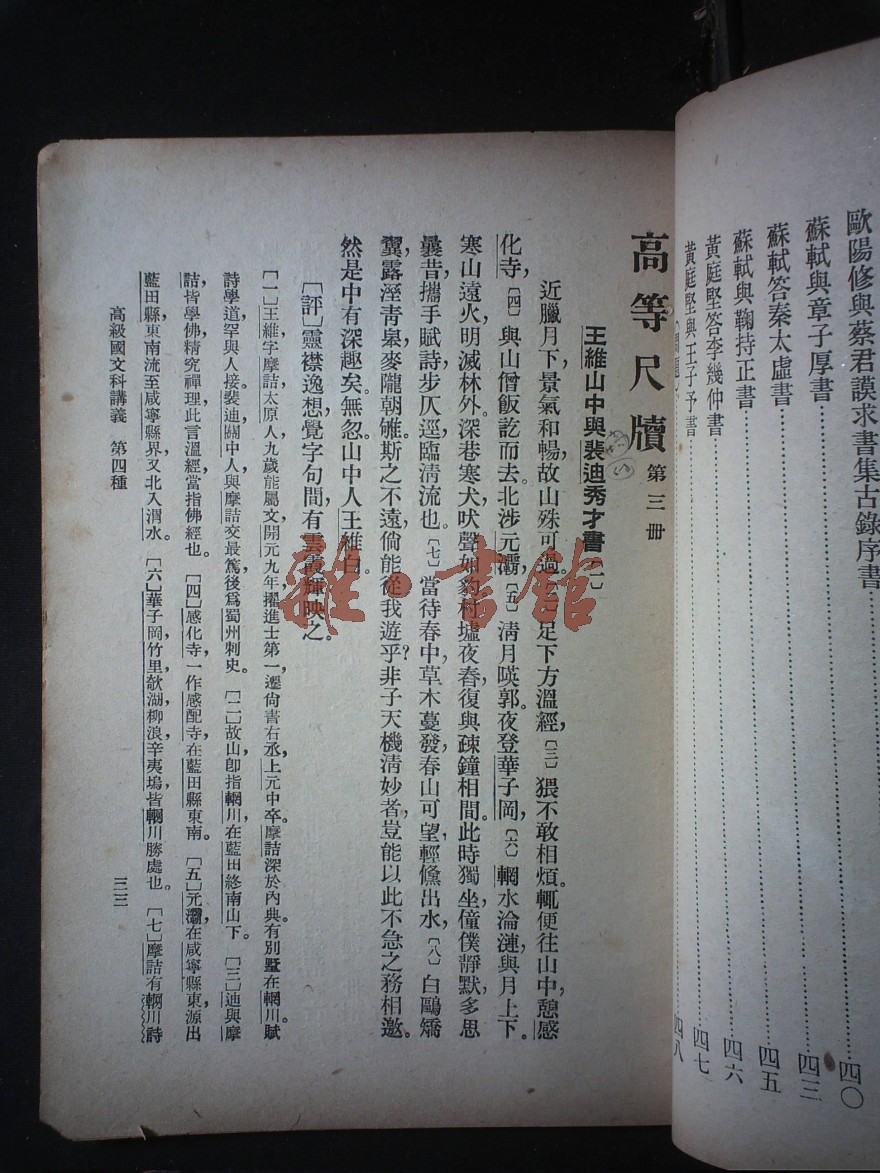 歐陽修與蔡君謨求書集古錄序書……四〇
蘇軾與章子厚書……四三
蘇軾答秦太虛書……四五
蘇軾與鞠持正書……四六
黃庭堅答李幾仲書……四七
黃庭堅與王子予書……四八
高等尺牘 第三冊
王維山中與裴迪秀才書〔一〕
近臘月下，景氣和暢，故山殊可過。〔二〕足下方溫經，〔三〕猥不敢相煩。輒便往山中，憩感
化寺，〔四〕與山僧飯訖而去。北涉元灞，〔五〕清月暎郭。夜登華子岡，〔六〕輞水淪漣，與月上下。
寒山遠火，明滅林外。深巷寒犬，吠聲如豹。村墟夜舂，復與疎鐘相間。此時獨坐，僮僕靜默，多思
曩昔，攜手賦詩，步仄逕，臨清流也。〔七〕當待春中，草木蔓發，春山可望，輕鯈出水，〔八〕白鷗矯
翼，露溼青皋，麥隴朝雊，斯之不遠，倘能從我遊乎？非子天機清妙者，豈能以此不急之務相邀。
然是中有深趣矣。無忽。山中人王維白。
〔評〕靈襟逸想，覺字句間有雲霞輝映之。
〔一〕王維字摩詰，太原人，九歲能屬文，開元九年，擢進士第一，遷尙書右丞，上元中卒。摩詰深於內典，有別墅在輞川，賦
詩學道，罕與人接。裴迪，關中人，與摩詰交最篤，後爲蜀州刺史。〔二〕故山卽指輞川，在藍田終南山下。〔三〕迪與摩
詰皆學佛，精究禪理，此言溫經，當指佛經也。〔四〕感化寺一作感配寺，在藍田縣東南。〔五〕元灞在咸寧縣東，源出
藍田縣東南，流至咸寧縣界，又北入渭水。〔六〕華子岡，竹里，欹湖，柳浪，辛夷塢，皆輞川勝處也。〔七〕摩詰有輞川詩
高級國文科講義 第四種
三三
雜·書館